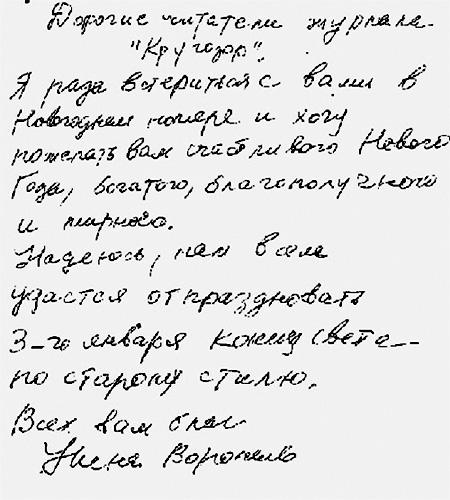 Дорогие читатели журнала
"Кругозор".
Я рада встретиться с вами в
Новогоднем номере и хочу
пожелать вам счастливого Нового
Года, богатого, благополучного
и мирного.
Надеюсь, нам всем
удастся отпраздновать
3-го января конец света –
по старому стилю.
Всех вам благ
Нина Воронель